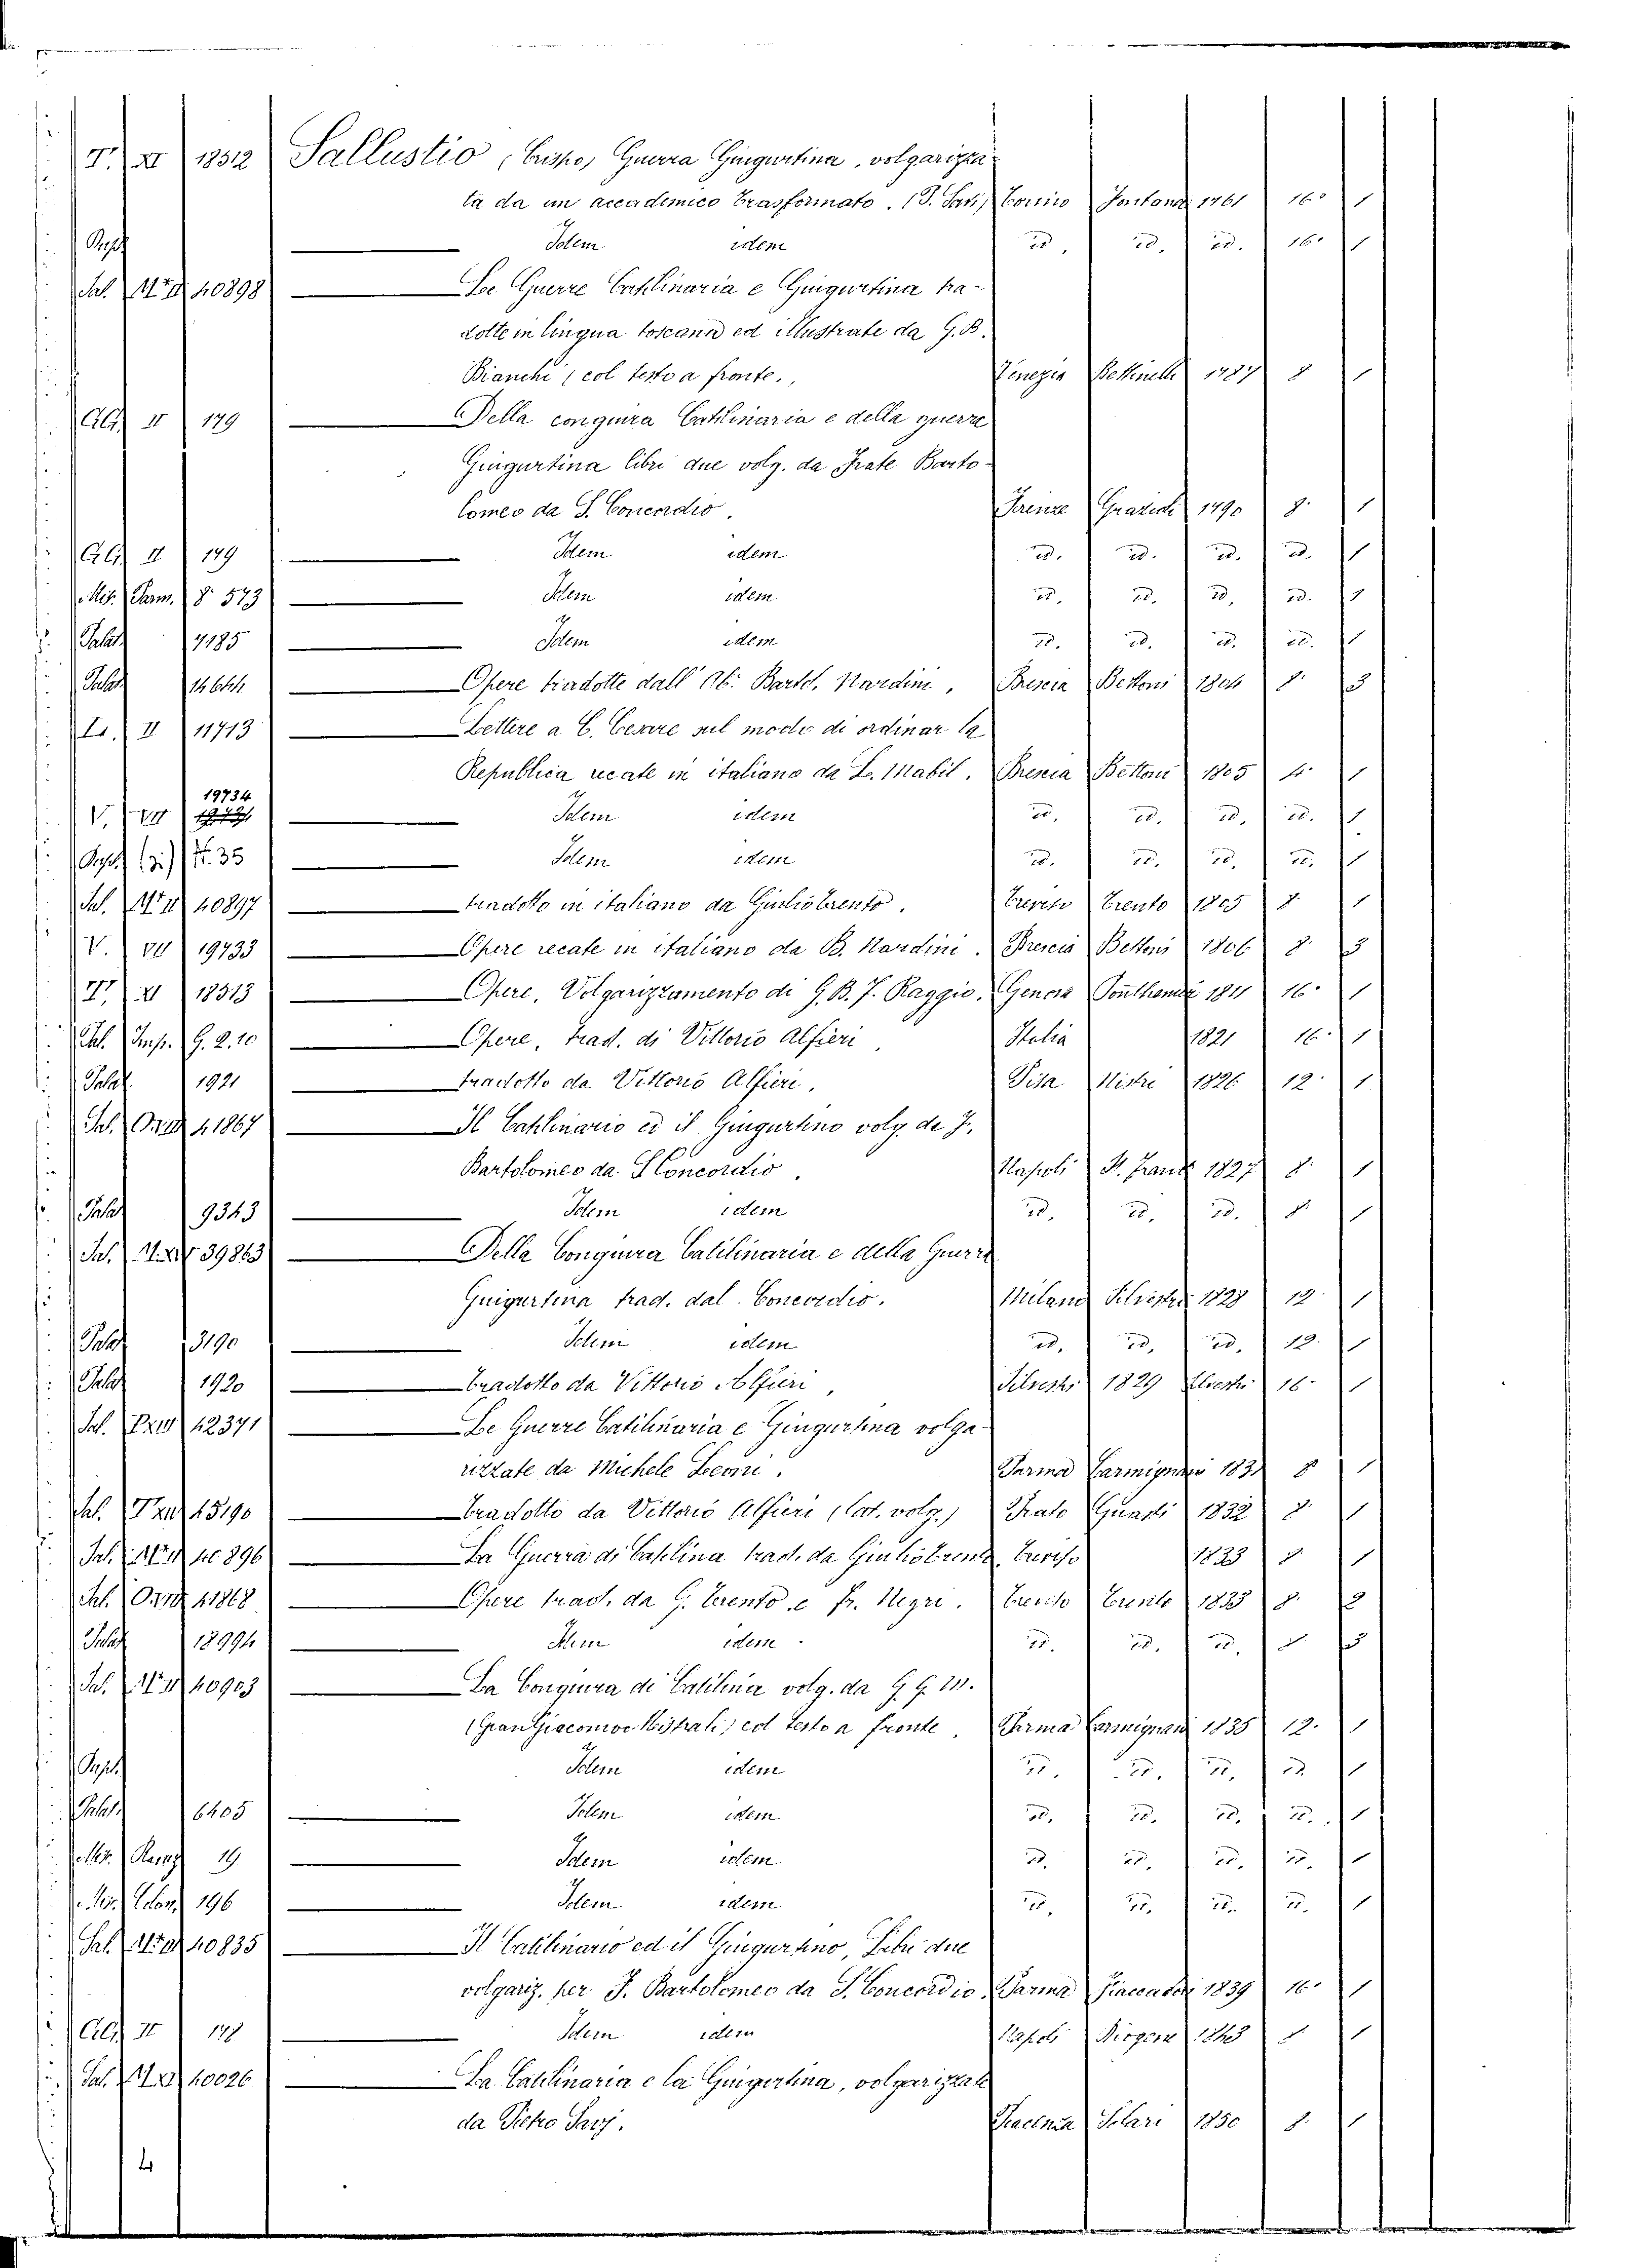 T. XI 18512 Sallustio, Crispo, Guerra Giugurtina, volgarizza-
ta da un accademico Trasformato. (P. Savj) 1761 16° 1
Idem idem id. id. id. 16° 1
Sal. 40898 Le Guerre Catilinaria e Giugurtina tra-
dotte in lingua toscana ed illustrate da G. B.
Bianchi (col testo a fronte.) Venezia Bettinelli 1787 8 1
II 179 Della congiura Catilinaria e della guerra
Giugurtina libri due volg. da Frate Barto-
lomeo da S. Concordio. Firenze Grazioli 1790 8° 1
II 179 Idem idem id. id. id. id. 1
Mis. Parm. 8° 573 Idem idem id. id. id. id. 1
Palat. 7185 Idem idem id. id. id. id. 1
Palat. Opere tradotte dall' Ab. Bartol. Nardini, Brescia Bettoni 1804 8° 3
II 11713 Lettere a C. Cesare sul modo di ordinar la
Republica recate in italiano da L. Mabil. Brescia Bettoni 1805 4° 1
19734
V. VII Idem idem id. id. id. id. 1
35 Idem idem id. id. id. id. 1
Sal. 40897 tradotto in italiano da Giulio Trento. Treviso Trento 1805 8° 1
V. VII 19733 Opere recate in italiano da B. Nardini. Brescia Bettoni 1806 8° 3
T. XI 18513 Opere, Volgarizzamento di G. B. F. Raggio. Genova Ponthenier 1811 16° 1
G. 2. 10 Opere, trad. di Vittorio Alfieri, Italia 1821 16° 1
Palat. 1921 tradotto da Vittorio Alfieri, Pisa Nistri 1826 12° 1
Sal. 41867 Il Catilinario ed il Giugurtino volg. da F.
Bartolomeo da S Concordio. Napoli 1827 8° 1
Palat. 9343 Idem idem id. id. id. 8° 1
Sal. 39863 Della Congiura Catilinaria e della Guerra
Guigurtina trad. dal Concordio. Milano Silvestri 1828 12° 1
Palat. 3190 Idem idem id. id. id. 12. 1
Palat. 1920 Tradotto da Vittorio Alfieri, Silvestri 1829 16° 1
Sal. 42371 Le Guerre Catilinaria e Giugurtina volga-
rizzate da Michele Leoni. Parma Carmignani 8 1
Sal. 45190 Tradotto da Vittorio Alfieri (Cat. volg.) Prato Guasti 1832 8° 1
Sal. 40896 La Guerra di Catilina trad. da Giulio Trento, Treviso 1833 8 1
Sal. 41868 Opere trad. da G. Trento e Fr. Negri. Treviso Trento 1833 8. 2
Palat. 12994 Idem idem id. id. id. 8
Sal. 40903 La Congiura di Catilina volg. da G. G. M.
(Gian Giacomo Mistrali) col testo a fronte. Parma Carmignani 1835 12. 1
Idem idem id. id. id. id. 1
Palat. 6405 Idem idem id. id. id. id. 1
Mis. 19. Idem idem id. id. id. id. 1
Mis. 196 Idem idem id. id. id. id. 1
Sal. 40835 Il Catilinario ed il Giugurtino, Libri due
volgariz. per F. Bartolomeo da S. Concordio. Parma Fiaccadori 1839 16° 1
II 178 Idem idem Napoli 1843 8 1
Sal. 40026 La Catilinaria e la Giugurtina, volgarizzate
da Pietro Savj. Piacenza Solari 1850 8. 1
4